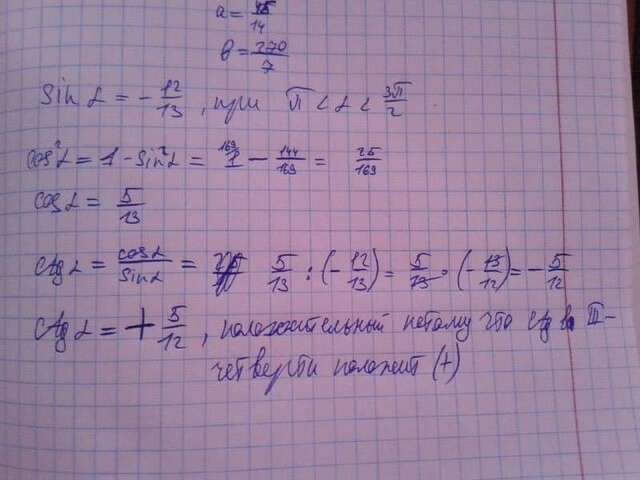 a = 45/14
b = 270/7
Sin α = - 12/13, при π < α < 3π/2
cos²α = 1 - sin²α = 1 - 144/169 = 25/169
cos α = 5/13
ctg α = cos α / sin α = 5/13 : (- 12/13) = 5/13 · (- 13/12) = - 5/12
ctg α = + 5/12, положительный потому что ctg в III-
четверти положит (+)